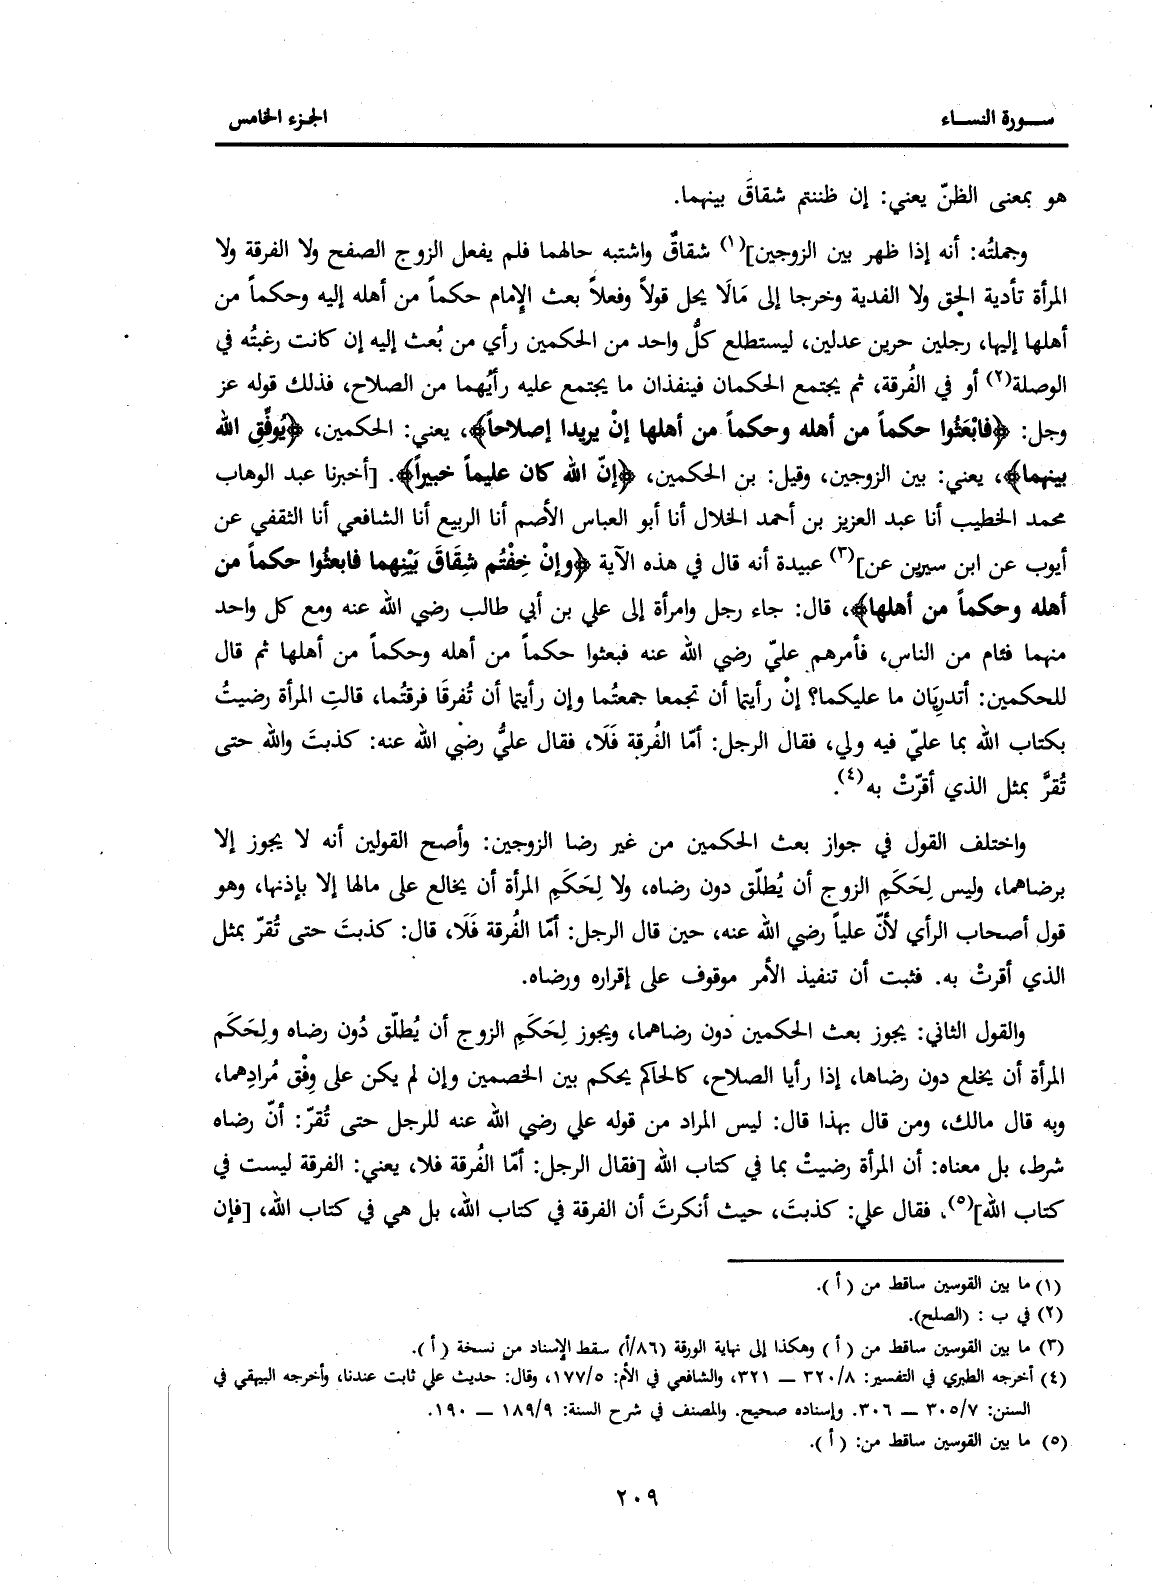 سورة النساء
الجزء الخامس
هو بمعنى الظنّ يعني: إن ظننتم شقاقَ بينهما.
وجملتُه: أنه إذا ظهر بين الزوجين](١) شقاقٌ واشتبه حالهما فلم يفعل الزوج الصفح ولا الفرقة ولا
المرأة تأدية الحق ولا الفدية وخرجا إلى مَالَا يحل قولاً وفعلاً بعث الإمام حكماً من أهله إليه وحكماً من
أهلها إليها، رجلين حرين عدلين، ليستطلع كلُّ واحد من الحكمين رأي من بُعث إليه إن كانت رغبتُه في
الوصلة(٢) أو في الفُرقة، ثم يجتمع الحكمان فينفذان ما يجتمع عليه رأيُهما من الصلاح، فذلك قوله عز
وجل: ﴿فابْعَثُوا حكماً من أهله وحكماً من أهلها إنْ يريدا إصلاحاً﴾، يعني: الحكمين، ﴿يُوفِّقِ الله
بينهما﴾، يعني: بين الزوجين، وقيل: بن الحكمين، ﴿إنّ الله كان عليماً خبيراً﴾. [أخبرنا عبد الوهاب
محمد الخطيب أنا عبد العزيز بن أحمد الخلال أنا أبو العباس الأصم أنا الربيع أنا الشافعي أنا الثقفي عن
أيوب عن ابن سيرين عن](٣) عبيدة أنه قال في هذه الآية ﴿وإنْ خِفْتُم شِقَاقَ بَيْنِهما فابعثُوا حكماً من
أهله وحكماً من أهلها﴾، قال: جاء رجل وامرأة إلى علي بن أبي طالب رضي الله عنه ومع كل واحد
منهما فئام من الناس، فأمرهم عليّ رضي الله عنه فبعثوا حكماً من أهله وحكماً من أهلها ثم قال
للحكمين: أتدريَان ما عليكما؟ إنْ رأيتما أن تجمعا جمعتُما وإن رأيتما أن تُفرقَا فرقتُما، قالتِ المرأة رضيتُ
بكتاب الله بما عليّ فيه ولي، فقال الرجل: أمّا الفُرقة فَلَا، فقال عليُّ رضي الله عنه: كذبتَ والله حتى
تُقرَّ بمثل الذي أقرّتْ به(٤).
واختلف القول في جواز بعث الحكمين من غير رضا الزوجين: وأصح القولين أنه لا يجوز إلا
برضاهما، وليس لِحَكَمِ الزوج أن يُطلّق دون رضاه، ولا لِحَكَمِ المرأة أن يخالع على مالها إلا بإذنها، وهو
قول أصحاب الرأي لأنّ علياً رضي الله عنه، حين قال الرجل: أمّا الفُرقة فَلَا، قال: كذبتَ حتى تُقرّ بمثل
الذي أقرتْ به. فثبت أن تنفيذ الأمر موقوف على إقراره ورضاه.
والقول الثاني: يجوز بعث الحكمين دون رضاهما، ويجوز لِحَكَمِ الزوج أن يُطلّق دُون رضاه ولِحَكَم
المرأة أن يخلع دون رضاها، إذا رأيا الصلاح، كالحاكم يحكم بين الخصمين وإن لم يكن على وِفْق مُرادِهما،
وبه قال مالك، ومن قال بهذا قال: ليس المراد من قوله علي رضي الله عنه للرجل حتى تُقرّ: أنّ رضاه
شرط، بل معناه: أن المرأة رضيتْ بما في كتاب الله [فقال الرجل: أمّا الفُرقة فلا، يعني: الفرقة ليست في
كتاب الله](٥)، فقال علي: كذبتَ، حيث أنكرتَ أن الفرقة في كتاب الله، بل هي في كتاب الله، [فإن
(١) ما بين القوسين ساقط من (أ).
(٢) في ب : (الصلح).
(٣) ما بين القوسين ساقط من (أ) وهكذا إلى نهاية الورقة (٨٦/أ) سقط الإسناد من نسخة (أ).
(٤) أخرجه الطبري في التفسير: ٣٢٠/٨ — ٣٢١، والشافعي في الأم: ١٧٧/٥، وقال: حديث علي ثابت عندنا، وأخرجه البيهقي في
السنن: ٣٠٥/٧ — ٣٠٦. وإسناده صحيح. والمصنف في شرح السنة: ١٨٩/٩ — ١٩٠.
(٥) ما بين القوسين ساقط من: (أ).
٢٠٩